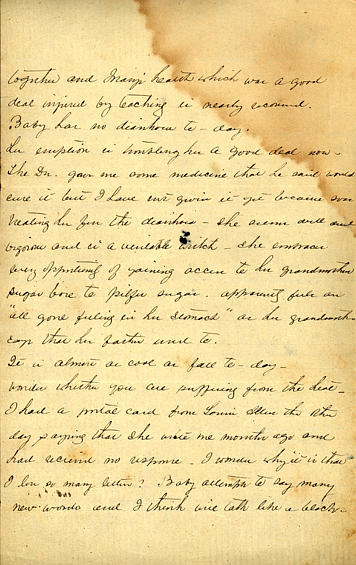 together and Mary's health which was a good
deal injured by teaching is nearly recovered.
Baby has no diarrhoea to-day.
Her eruption is troubling her a good deal now-
The Dr. gave me some medicine that he said would
cure it but I have not given it yet because was
treating her for the diarrhoea - she seems well and
vigorous and is a veritable witch - she embraces
every opportunity of gaining access to her grandmothers
sugar box to pilfer sugar. apparently feels an
"all gone feeling in her stomach" as her grandmother
says that her father used to.
It is almost as cool as fall to-day-
wonder whether you are suffering from the heat-
I had a postal card from the other
day saying that she wrote me months ago and
had received no response. I wonder why it is that
I lose so many letters? Baby attempts to say many
new words and I think will talk like a black-